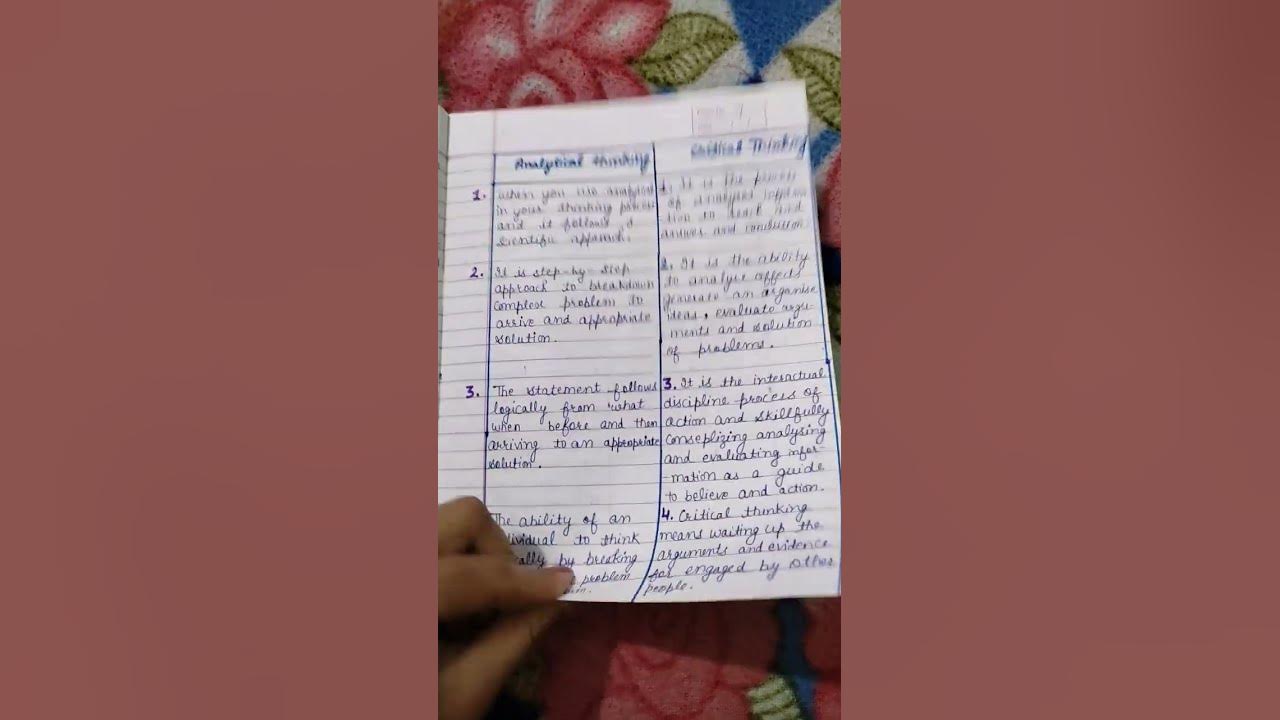 Analytical thinking
1. when you use analytical
in your thinking process
and it follows a
scientific approach.
2. It is step-by-step
approach to breakdown
complex problem to
arrive and appropriate
solution.
3. The statement follows
logically from what
when before and then
arriving to an appropriate
solution.
The ability of an
individual to think
by breaking
problem
Critical Thinking
1. It is the process
of
tion to reach and
answer and conclusion
2. It is the ability
to analyse affects
generate an organise
ideas, evaluate argu-
ments and solution
of problems.
3. It is the interactual
discipline process of
action and skillfully
conseplizing analysing
and evaluating infor-
-mation as a guide
to believe and action.
4. Critical thinking
means waiting up the
arguments and evidence
for engaged by other
people.